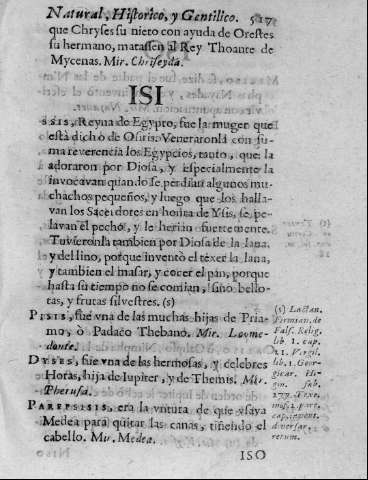 Natural, Historico, y Gentilico. 517
que Chryses su nieto con ayuda de Orestes
su hermano, matassen al Rey Thoante de
Mycenas. Mir. Chriseyda.
ISI
ISSIS, Reyna de Egypto, fue la muger que
està dicho de Osiris. Veneraronla con su-
ma reverencia los Egypcios, tanto, que la
adoraron por Diosa, y especialmente la
invocavan quando se perdian algunos mu-
chachos pequeños, y luego que los halla-
van los Sacerdotes en honra de Ysis, se pe-
lavan el pecho, y le herian fuertemente.
Tuvieronla tambien por Diosa de la lana,
y del lino, porque inventò el texer la lana,
y tambien el masar, y cocer el pan, porque
hasta su tiempo no se comian, sino bello-
tas, y frutas silvestres. (s)
PISIS, fue vna de las muchas hijas de Pria-
mo, ò Padaco Thebano. Mir. Laome-
donte.
DYSES, fue vna de las hermosas, y celebres
Horas, hija de Iupiter, y de Themis. Mir.
Pherusa.
PAREPSISIS, era la vntura de que vsava
Medea para quitar las canas, tiñendo el
cabello. Mir. Medea.
(s) Lactan.
Firmian. de
Fals. Relig.
lib. 1. cap.
11. Virgil.
lib. 1. Geor-
gicar. Hi-
gin. fab.
277.
cap.
diversar.
rerum.
ISO